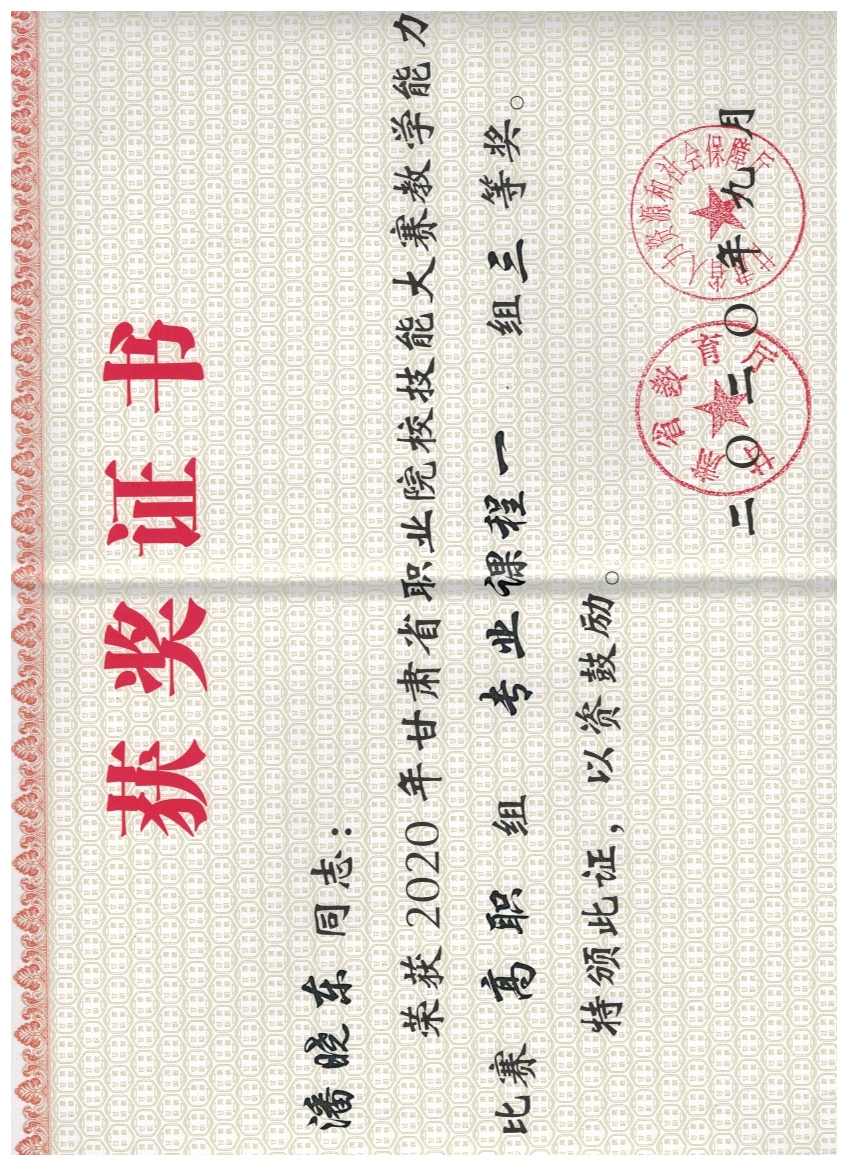 获奖证书
潘晓东同志：
荣获2020年甘肃省职业院校技能大赛教学能力
比赛 高职 组 专业课程一 组三等奖。
特颁此证，以资鼓励。
甘肃省教育厅
甘肃省人力资源和社会保障厅
二〇二〇年九月